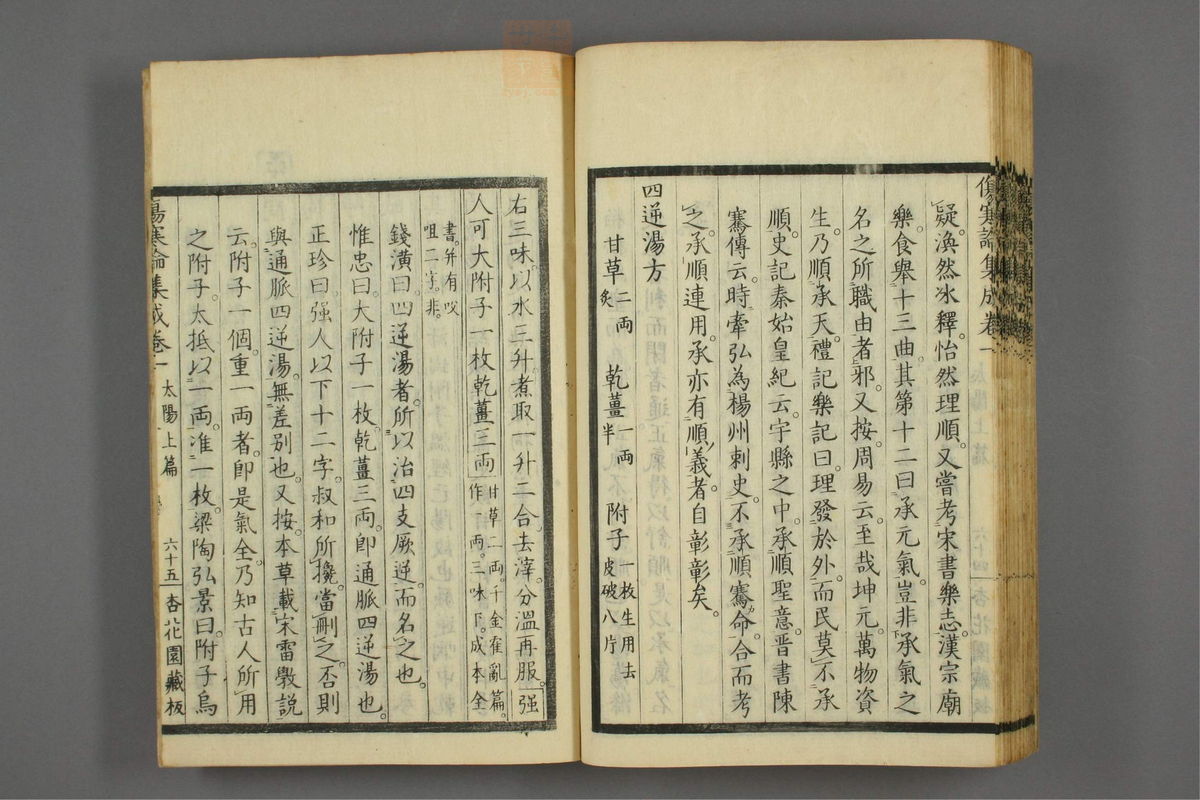 傷寒論集成卷一
疑渙然冰釋怡然理順又嘗考宋書樂志漢宗廟
樂食舉十三曲其第十二曰承元氣豈非承氣之
名之所職由者邪又按周易云至哉坤元萬物資
生乃順承天禮記樂記曰理發於外而民莫不承
順史記秦始皇紀云宇縣之中承順聖意晋書陳
騫傳云時牽弘為楊州刺史不承順騫命合而考
之承順連用承亦有順義者自彰彰矣
四逆湯方
甘草二両炙 乾薑一両半 附子一枚生用去皮破八片
右三味以水三升煮取一升二合去滓分溫再服强
人可大附子一枚乾薑三両甘草二両千金霍亂篇作一両三味下成本全
書并有㕮咀二字非
錢潢曰四逆湯者所以治四支厥逆而名之也
惟忠曰大附子一枚乾薑三両卽通脈四逆湯也
正珍曰强人以下十二字叔和所攙當刪之否則
與通脈四逆湯無差別也又按本草載宋雷斅説
云附子一個重一両者卽是氣全乃知古人所用
之附子大抵以一両准一枚梁陶弘景曰附子烏
傷寒論集成卷一 太陽上篇 六十五 杏花園藏板